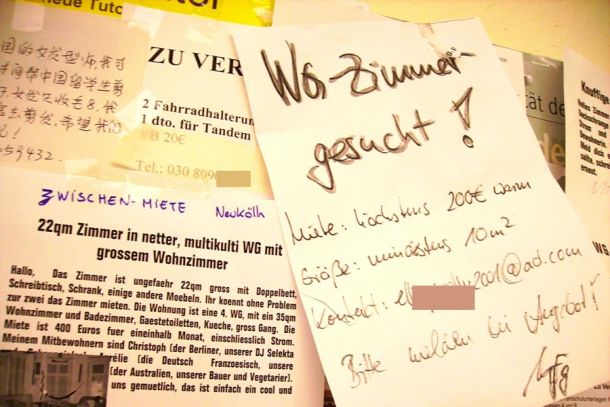 neue Tuto
国的女发型师,我可
ZU VER
2 Fahrradhalterun
1 dto. für Tandem
VB 20€
Tel.: 030 8090
059432.
ZWISCHEN-MIETE Neukölln
22qm Zimmer in netter, multikulti WG mit
grossem Wohnzimmer
Hallo, Das Zimmer ist ungefaehr 22qm gross mit Doppelbett,
Schreibtisch, Schrank, einige andere Moebeln. Ihr koennt ohne Problem
zur zwei das Zimmer mieten. Die Wohnung ist eine 4. WG, mit ein 35qm
Wohnzimmer und Badezimmer, Gaestetoiletten, Kueche, gross Gang. Die
Miete ist 400 Euros fuer eineinhalb Monat, einschliesslich Strom.
Meinem Mitbewohnern sind Christoph (der Berliner, unserer DJ Selekta
rélie (die Deutsch Franzoesisch, unsere
(der Australien, unserer Bauer und Vegetarier).
uns gemuetlich, das ist einfach ein cool und
WG-Zimmer
gesucht!
Miete: höchstens 200€ warm
Größe: mindestens 10m²
Kontakt: 2001@aol.com
Bitte melden bei Angebot!
ität de
Knuffige
WG